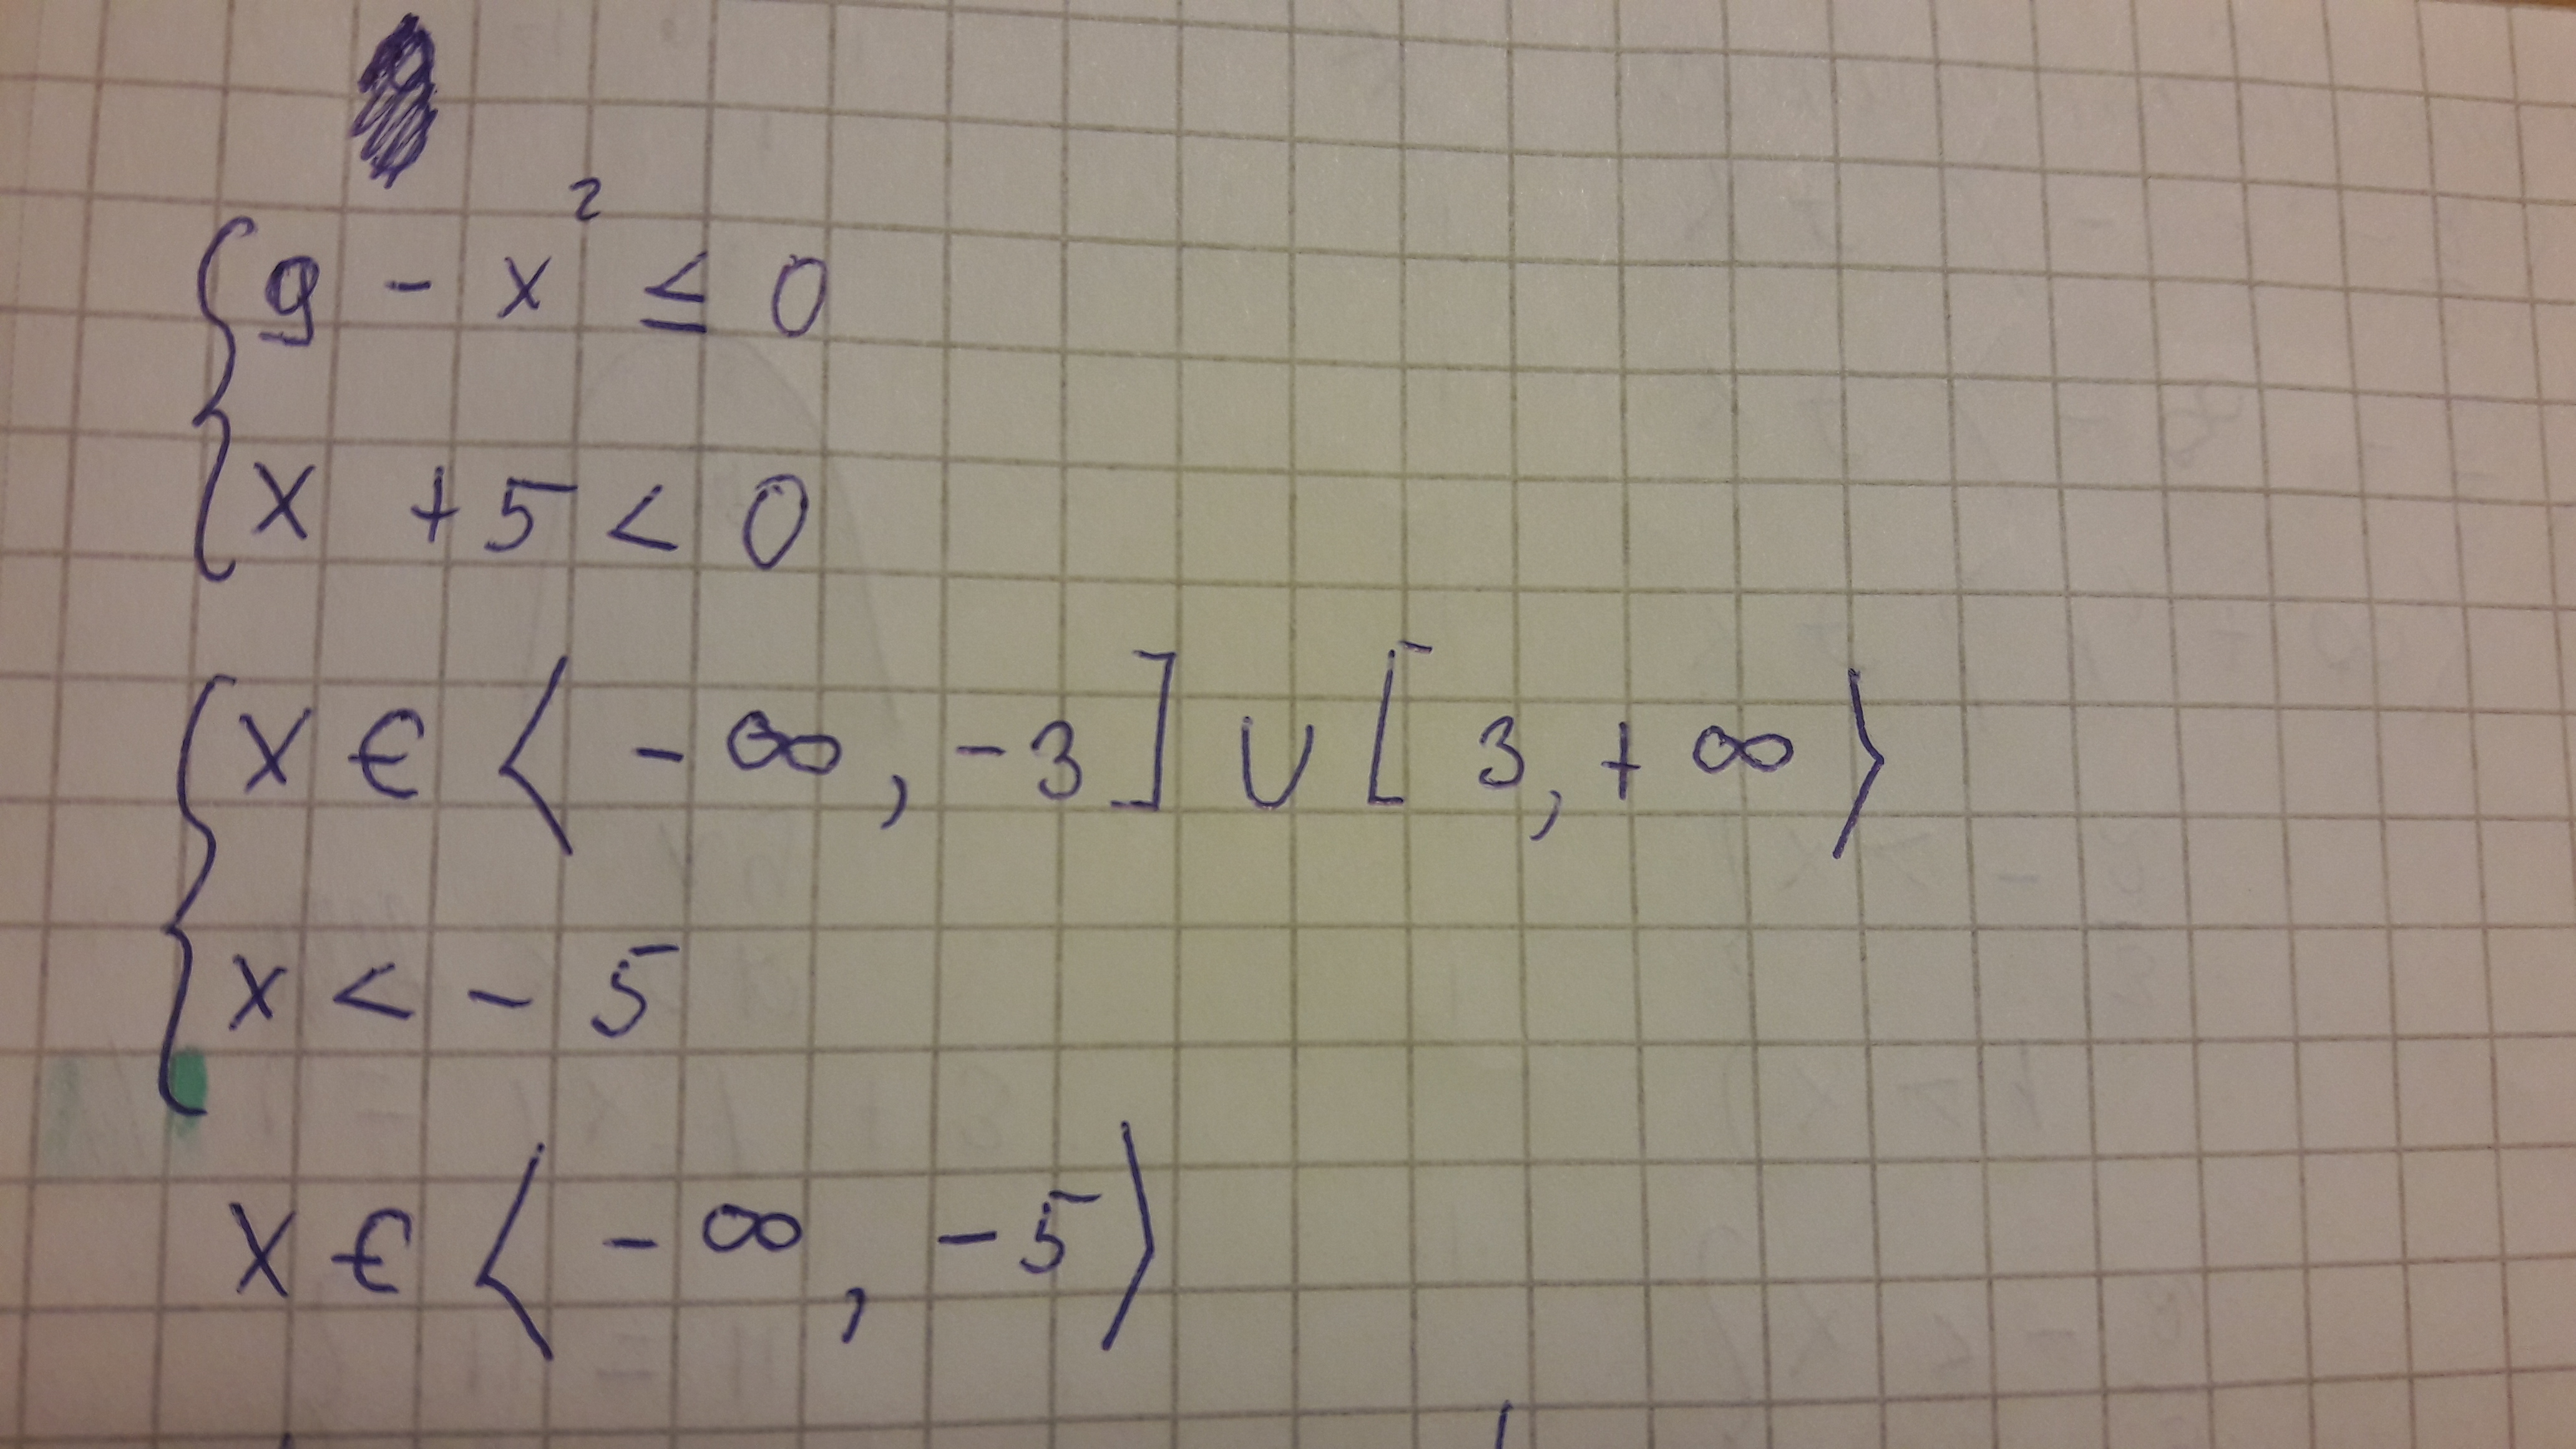 9 - x² ≤ 0
x + 5 < 0
x ∈ ⟨ -∞, -3] ∪ [ 3, +∞ ⟩
x < - 5
x ∈ ⟨ -∞, -5 ⟩